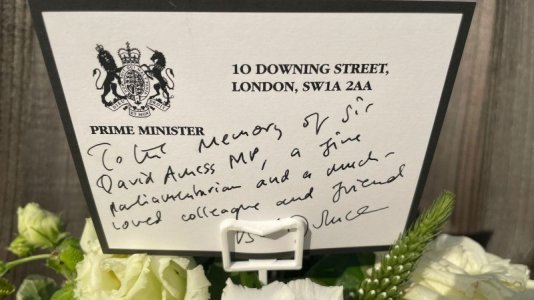 10 DOWNING STREET,
LONDON, SW1A 2AA
PRIME MINISTER
To the memory of Sir
David Amess MP, a fine
parliamentarian and a much-
loved colleague and friend